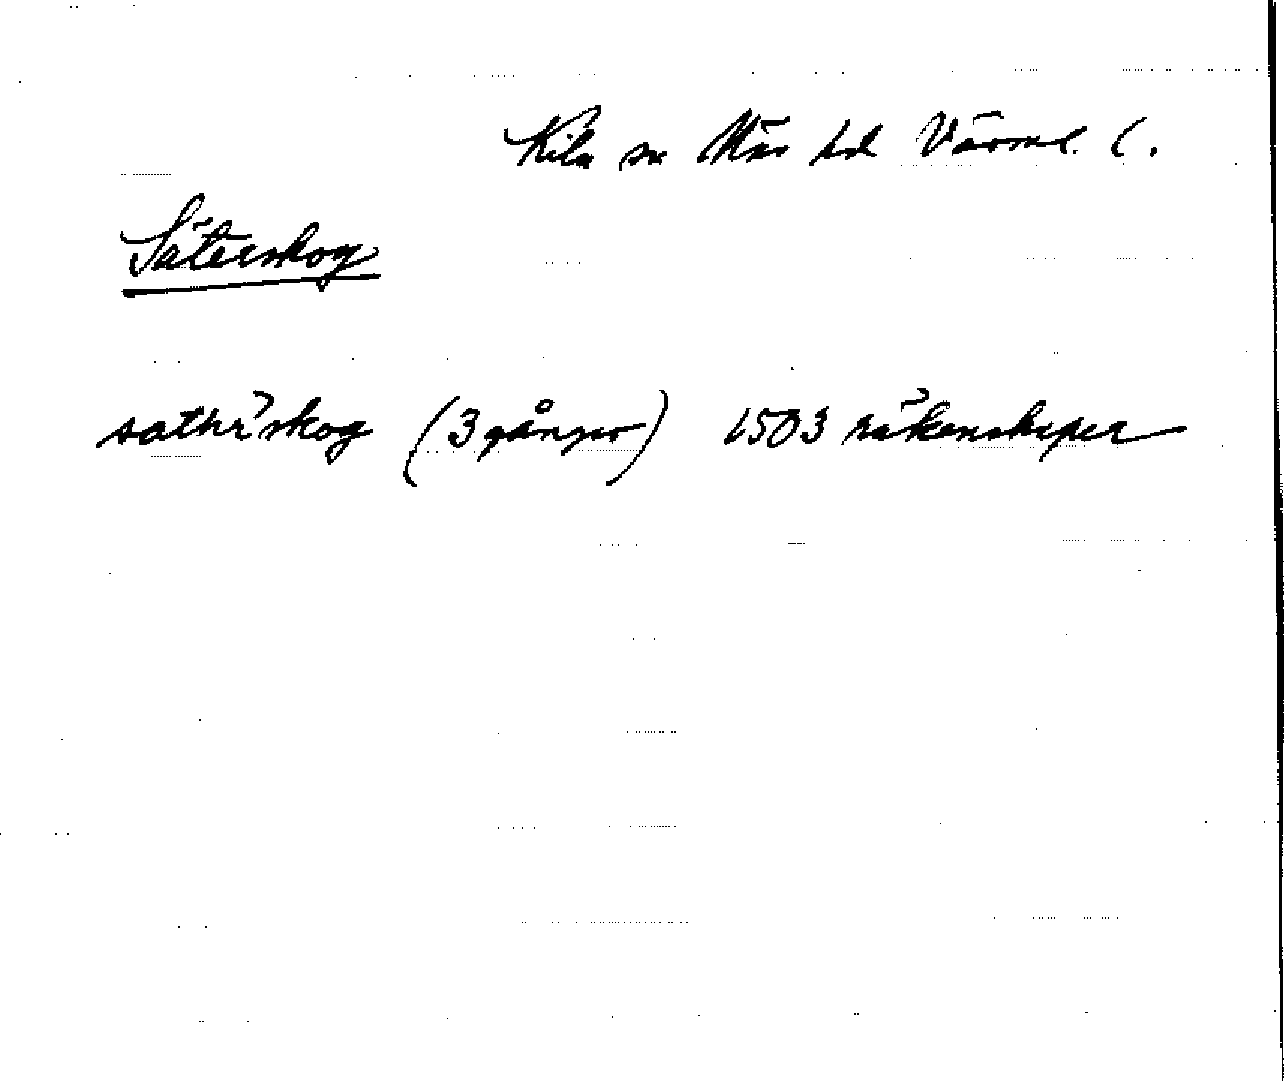 Kila sn Näs hd Värml. l.
Säterskog
sathrskog (3 gånger) 1503 räkenskaper